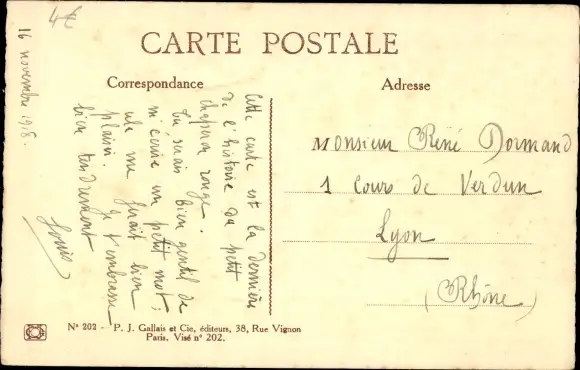 4€
16 novembre 1918.
CARTE POSTALE
Correspondance
Cette carte est la dernière
de l'histoire du petit
chaperon rouge.
Tu serais bien gentil de
m'écrire un petit mot;
cela me ferait bien
plaisir. Je t'embrasse
bien tendrement
Louis
Adresse
Monsieur René Dormand
1 Cours de Verdun
Lyon
(Rhône)
N° 202 - P. J. Gallais et Cie, éditeurs, 38, Rue Vignon
Paris. Visé n° 202.